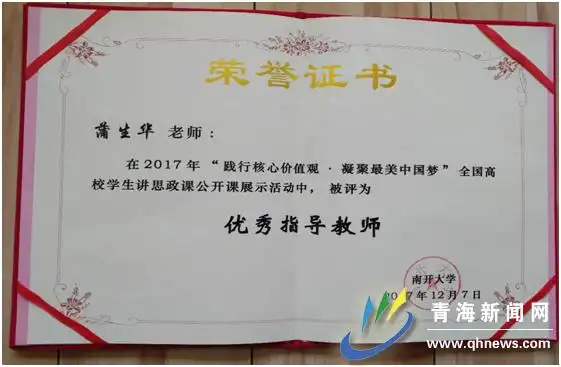 荣誉证书
蒲生华 老师：
在2017年“践行核心价值观·凝聚最美中国梦”全国高
校学生讲思政课公开课展示活动中，被评为
优秀指导教师
南开大学
2017年12月7日
青海新闻网
www.qhnews.com